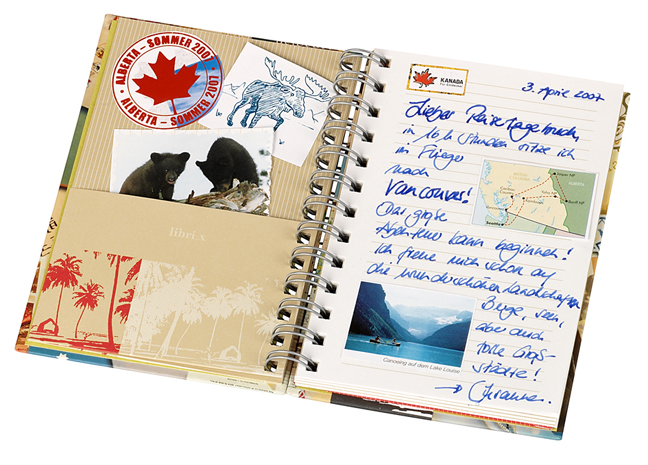 ALBERTA – SOMMER 2007
ALBERTA – SOMMER 2007
libri_x
KANADA
3. April 2007
Lieber Reisetagebuch,
in 16 h Stunden sitze ich
im Flieger
nach
Vancouver!
Das große
Abenteuer kann beginnen!
Ich freue mich schon auf
die wunderschönen Landschaften
Berge, Seen,
aber auch
tolle Groß-
städte!
Canoeing auf dem Lake Louise
ALBERTA